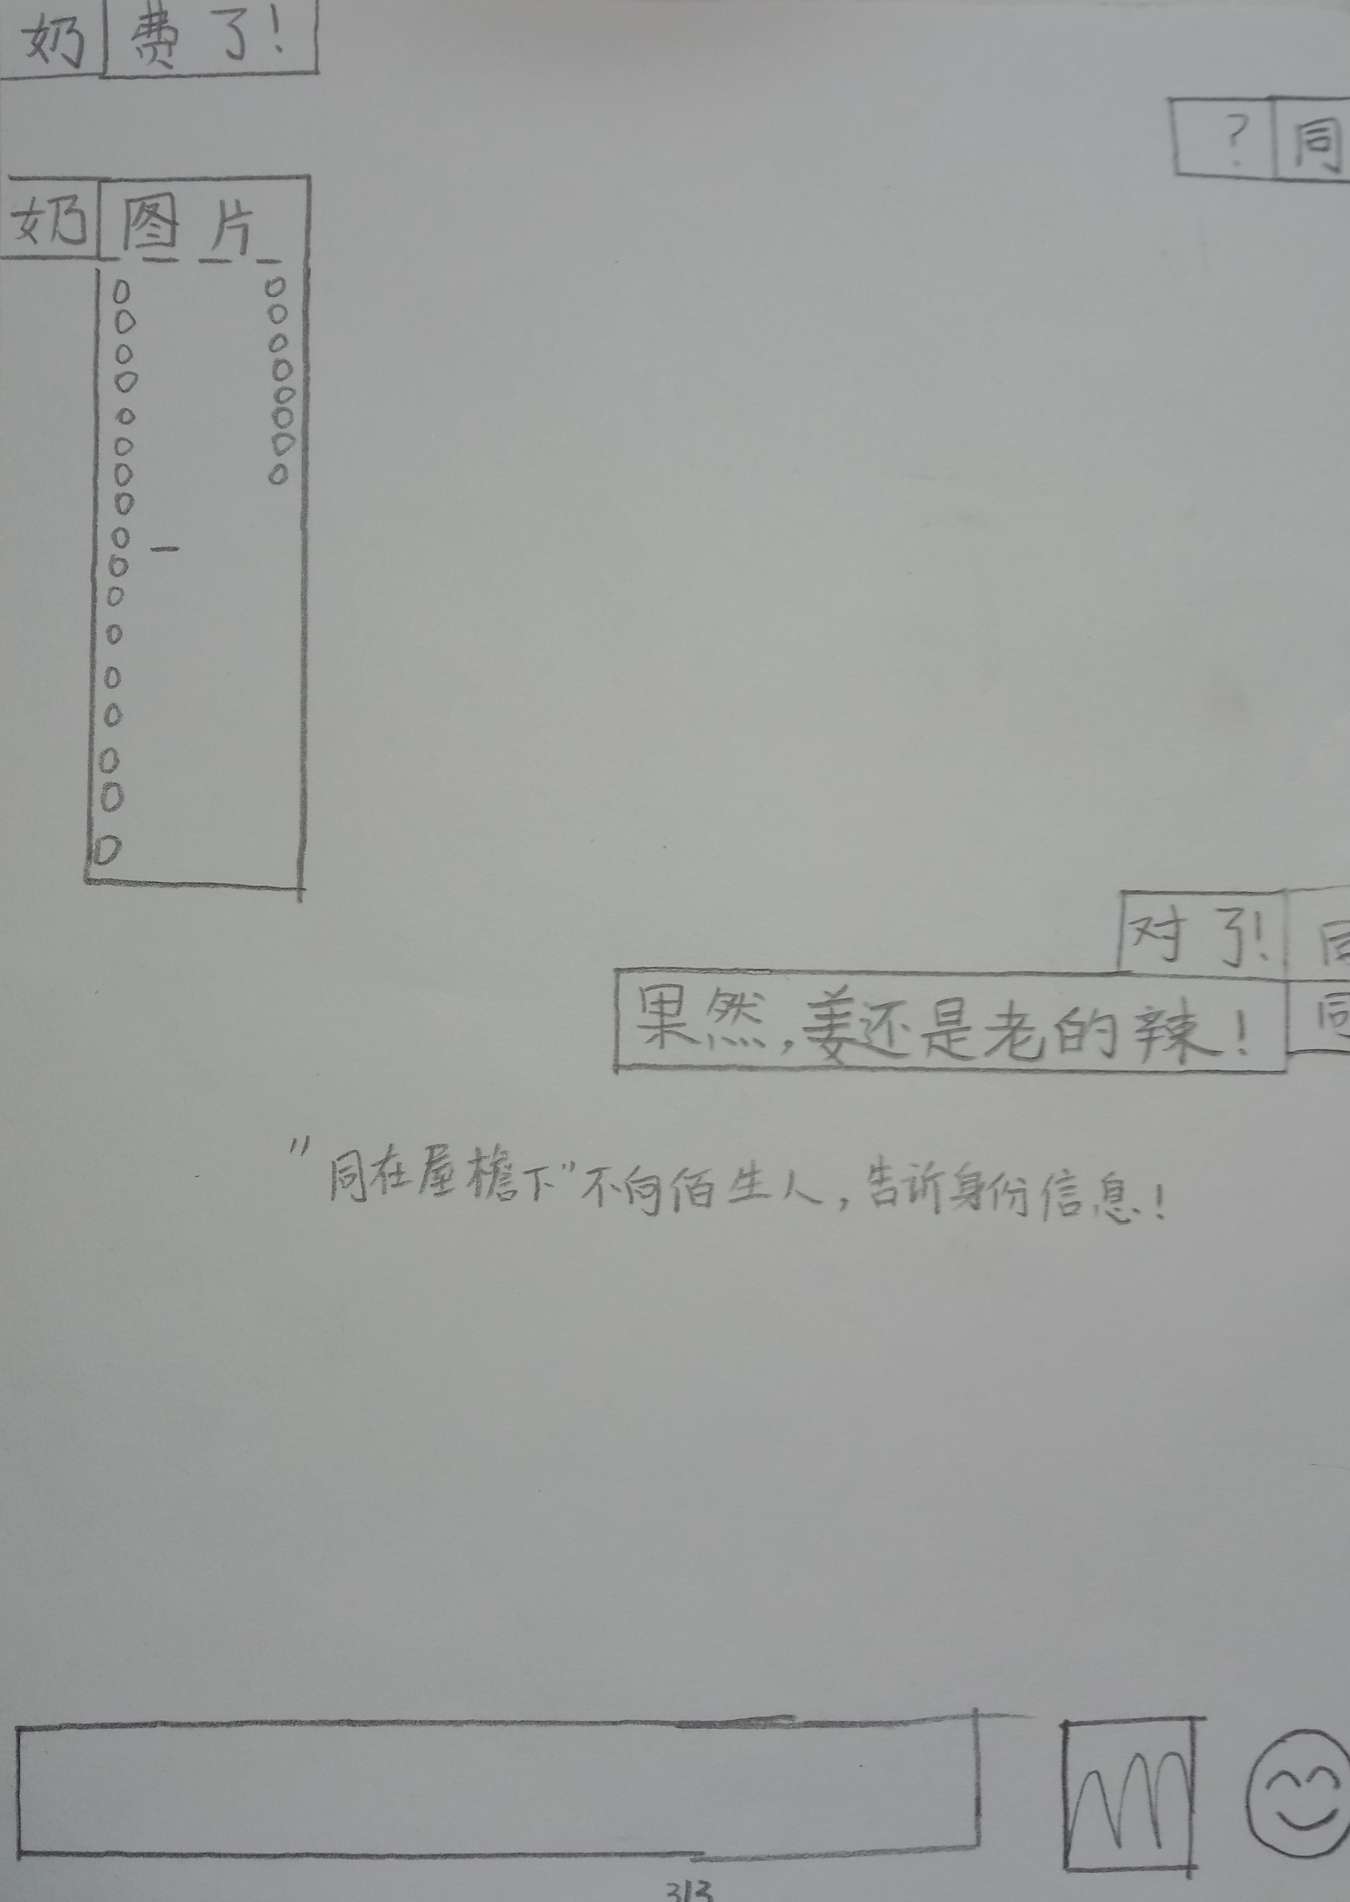 奶 费了！
？ 同
奶 图片
对了！ 同
果然，姜还是老的辣！ 同
"同在屋檐下"不向佰生人，告诉身份信息！
3/3